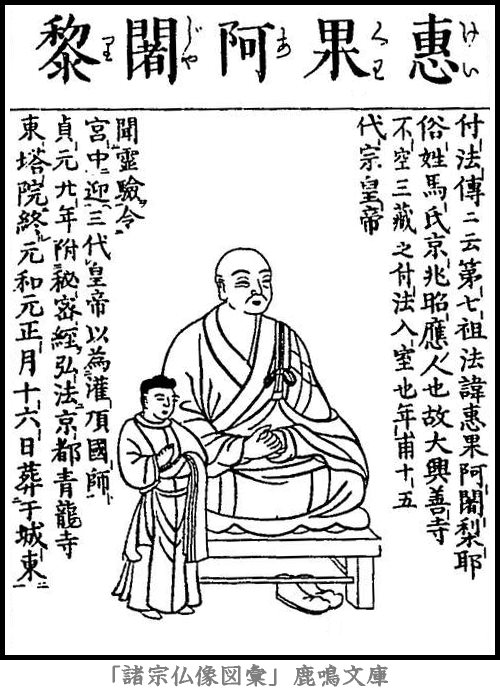 惠果阿闍黎
けいくわあじやり
付法傳ニ云第七祖法諱惠果阿闍梨耶
俗姓馬氏京兆昭應人也故大興善寺
不空三藏之付法入室也年甫十五
代宗皇帝
聞靈驗令
宮中迎三代皇帝以為灌頂國師
貞元廿年附秘密經弘法京都青龍寺
東塔院終元和元正月十六日葬于城東
「諸宗仏像図彙」鹿鳴文庫